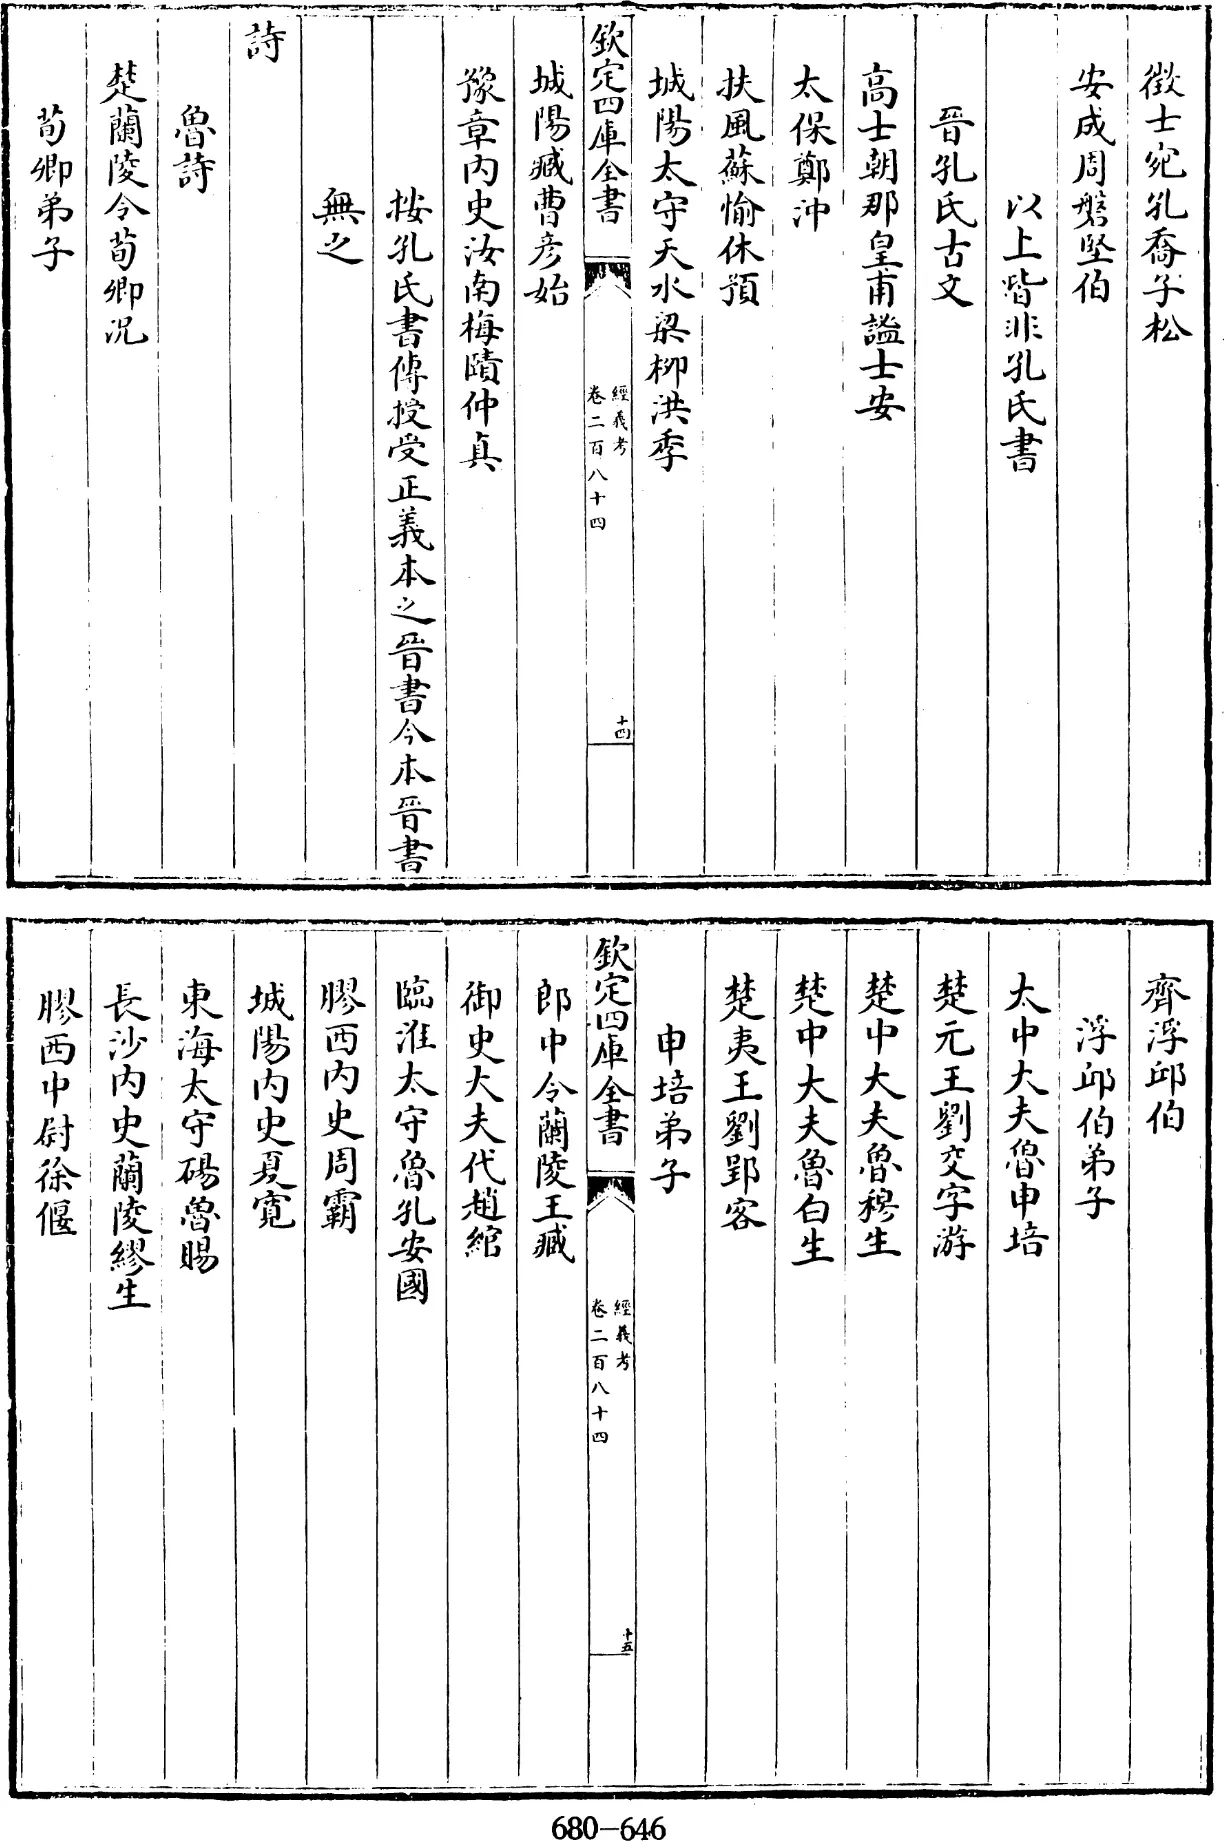 徵士宛孔喬子松
安成周磐堅伯
以上皆非孔氏書
晉孔氏古文
高士朝那皇甫謐士安
太保鄭沖
扶風蘇愉休預
城陽太守天水梁柳洪季
欽定四庫全書
經義考
卷二百八十四
十四
城陽臧曹彦始
豫章内史汝南梅賾仲真
按孔氏書傳授受正義本之晉書今本晉書
無之
詩
魯詩
楚蘭陵令荀卿况
荀卿弟子
齊浮邱伯
浮邱伯弟子
太中大夫魯申培
楚元王劉交字游
楚中大夫魯穆生
楚中大夫魯白生
楚夷王劉郢客
申培弟子
欽定四庫全書
經義考
卷二百八十四
十五
郎中令蘭陵王臧
御史大夫代趙綰
臨淮太守魯孔安國
膠西内史周霸
城陽内史夏寛
東海太守碭魯賜
長沙内史蘭陵繆生
膠西中尉徐偃
680-646